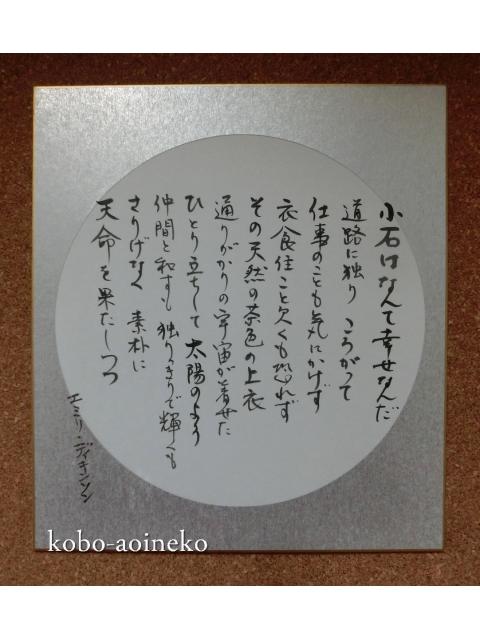 小石はなんて幸せなんだ
道路に独り ころがって
仕事のことも気にかけず
衣食住こと欠くも恐れず
その天然の茶色の上衣
通りがかりの宇宙が着せた
ひとり立ちして 太陽のよう
仲間と和すも 独りきりで輝くも
さりげなく 素朴に
天命を果たしつつ
エミリ・ディキンソン
kobo-aoineko